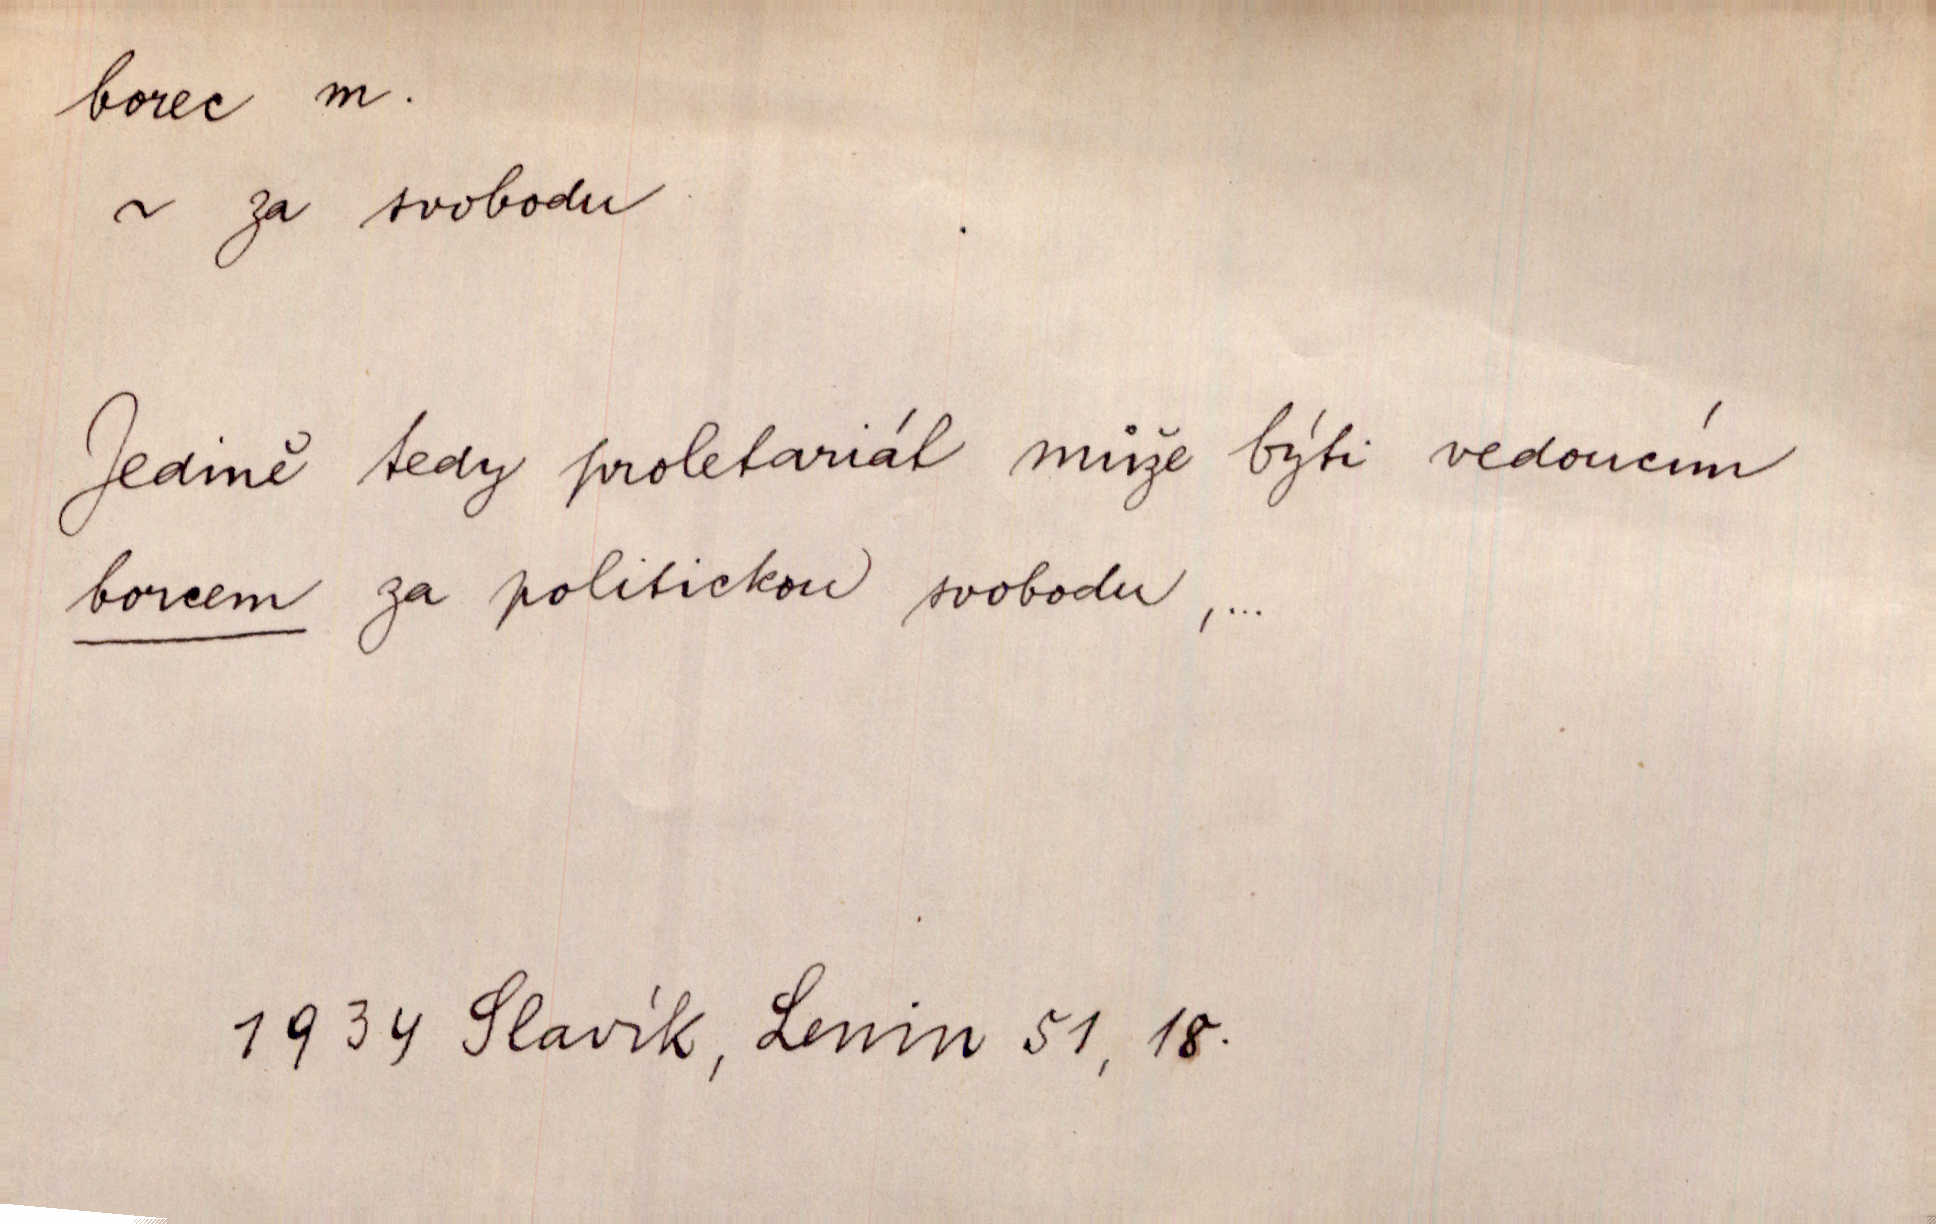 borec m.
~ za svobodu
Jedině tedy proletariát může býti vedoucím
borcem za politickou svobodu,...
1934 Slavík, Lenin 51, 18.